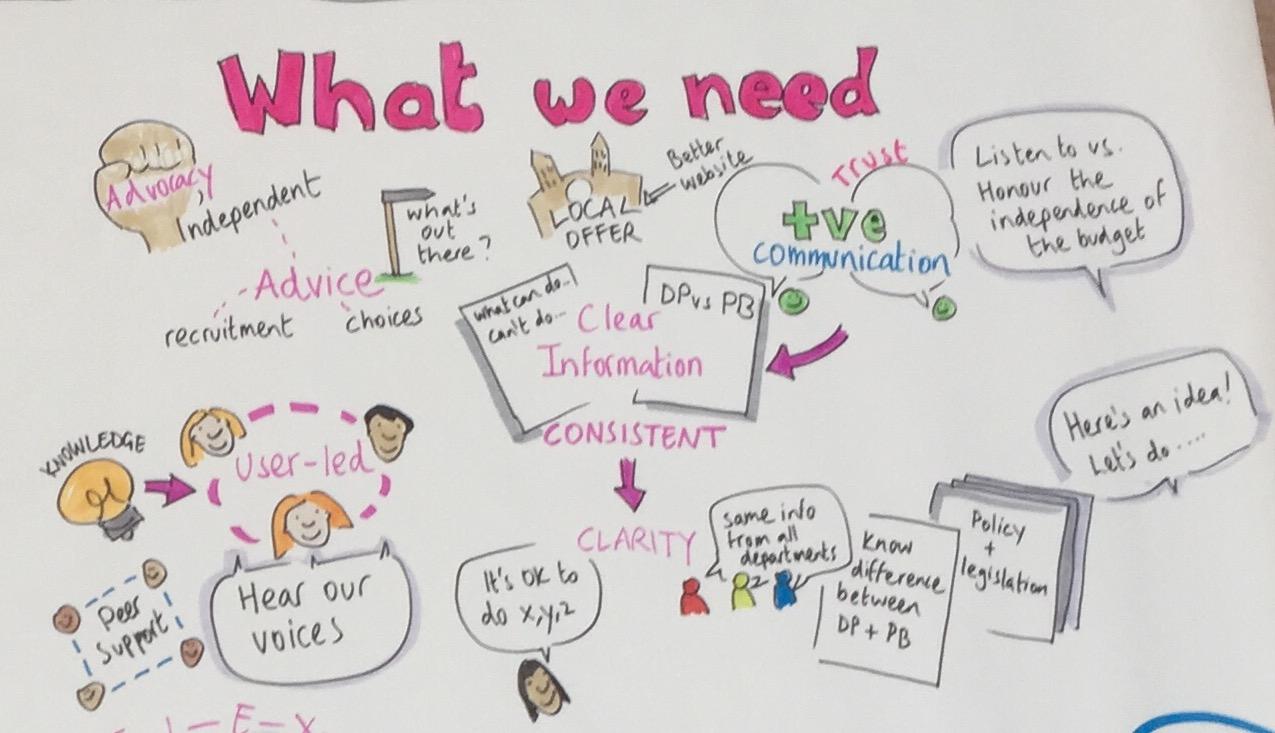 What we need
Advocacy,
Independent
Advice
recruitment
choices
what's
out
there?
LOCAL
OFFER
Better
website
Trust
+ve
communication
Listen to us.
Honour the
independence of
the budget
what can do...
can't do...
DP vs PB
Clear
Information
CONSISTENT
CLARITY
KNOWLEDGE
User-led
Hear our
voices
Peer
Support
It's OK to
do x,y,z
same info
from all
departments
Know
difference
between
DP + PB
Policy
+
legislation
Here's an idea!
Let's do .....
E-X